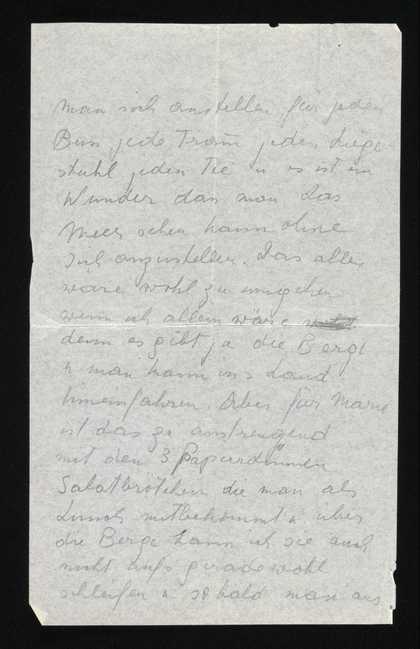 man sich anstellen für jeden
Bus jede Tram jeden Liege-
stuhl jeden Tee u es ist ein
Wunder dass man das
Meer sehen kann ohne
sich anzustellen. Das alles
wäre wohl zu umgehen
wenn ich allein wäre
denn es gibt ja die Berge
u man kann ins Land
hineinfahren. Aber für Marie
ist das zu anstrengend
mit den 3 papierdünnen
Salatbrötchen die man als
Lunch mitbekommt u über
die Berge kann ich sie auch
nicht aufs geradewohl
schleifen u sobald man aus